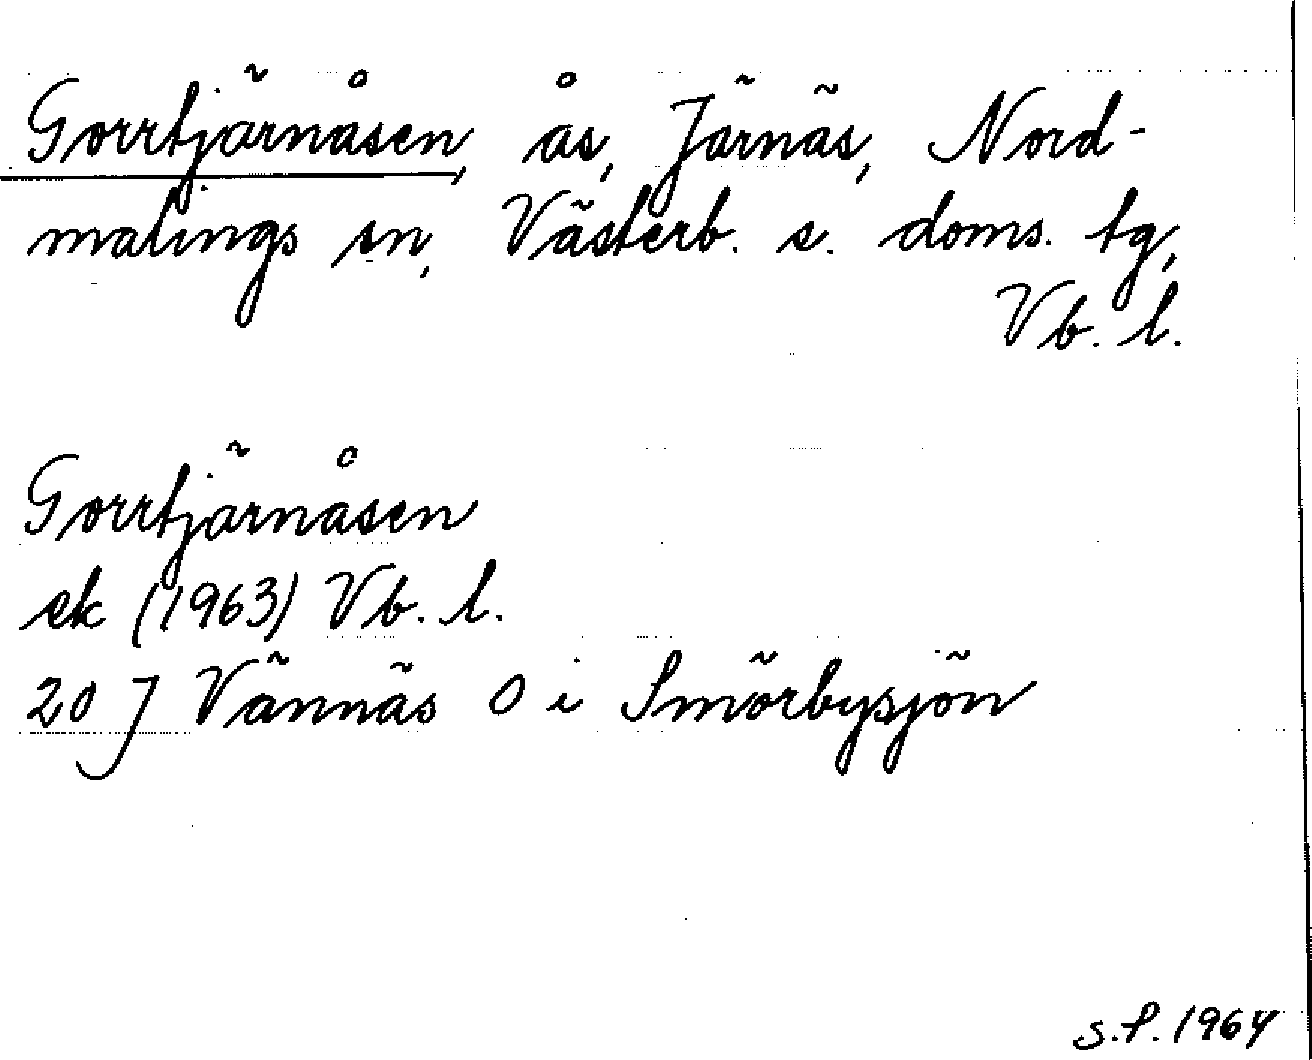 Gorrtjärnåsen, ås, Järnäs, Nord-
malings sn, Västerb. s. doms. tg,
Vb. l.
Gorrtjärnåsen
ek (1963) Vb. l.
20 J Vännäs O i Smörbysjön
S.P. 1964